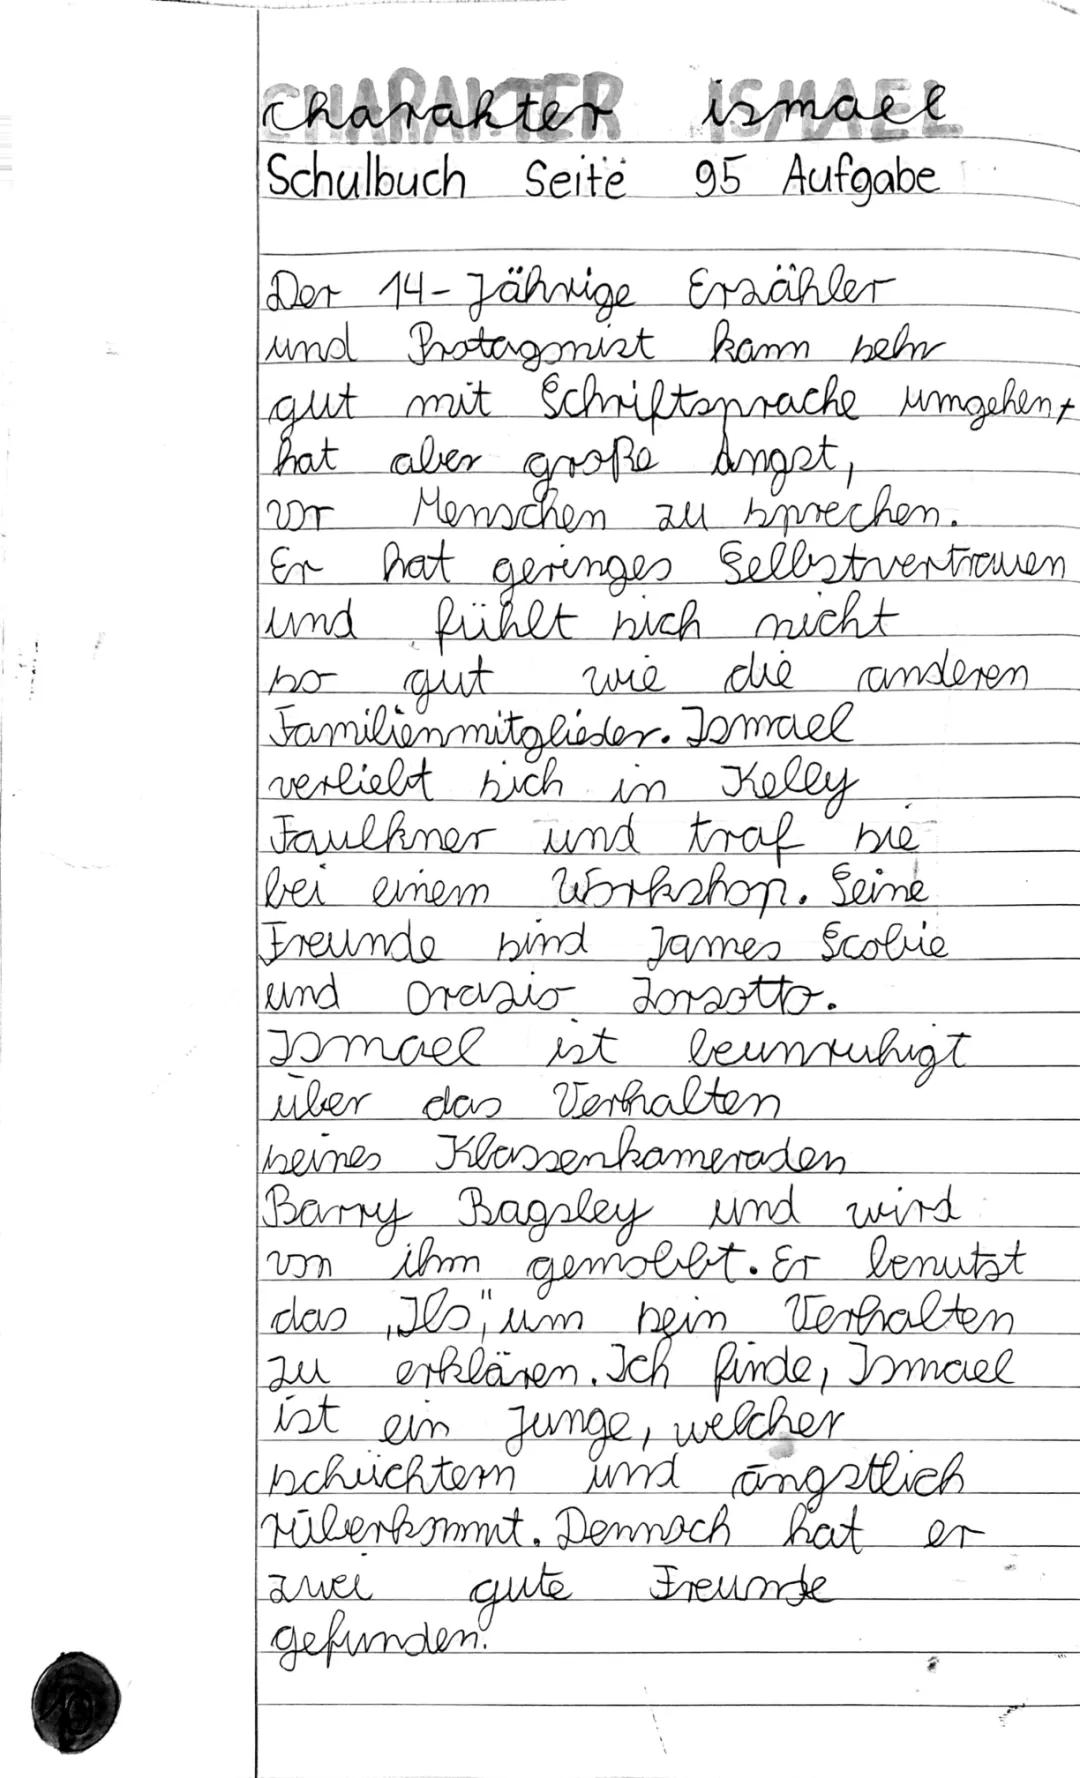 Charakter ismael
Schulbuch Seite 95 Aufgabe
Der 14-Jährige Erzähler
und Protagonist kann sehr
gut mit Schriftsprache umgehen,
hat aber große Angst,
vor Menschen zu sprechen.
Er hat geringes Selbstvertrauen
und fühlt sich nicht
so gut wie die anderen
Familienmitglieder. Ismael
verliebt sich in Kelly
Faulkner und traf sie
bei einem Workshop. Seine
Freunde sind James Scobie
und Orazio Zorzotto.
Ismael ist beunruhigt
über das Verhalten
seines Klassenkameraden
Barry Bagsley und wird
von ihm gemobbt. Er benutzt
das „Ils", um sein Verhalten
zu erklären. Ich finde, Ismael
ist ein Junge, welcher
schüchtern und ängstlich
rüberkommt. Dennoch hat er
zwei gute Freunde
gefunden.